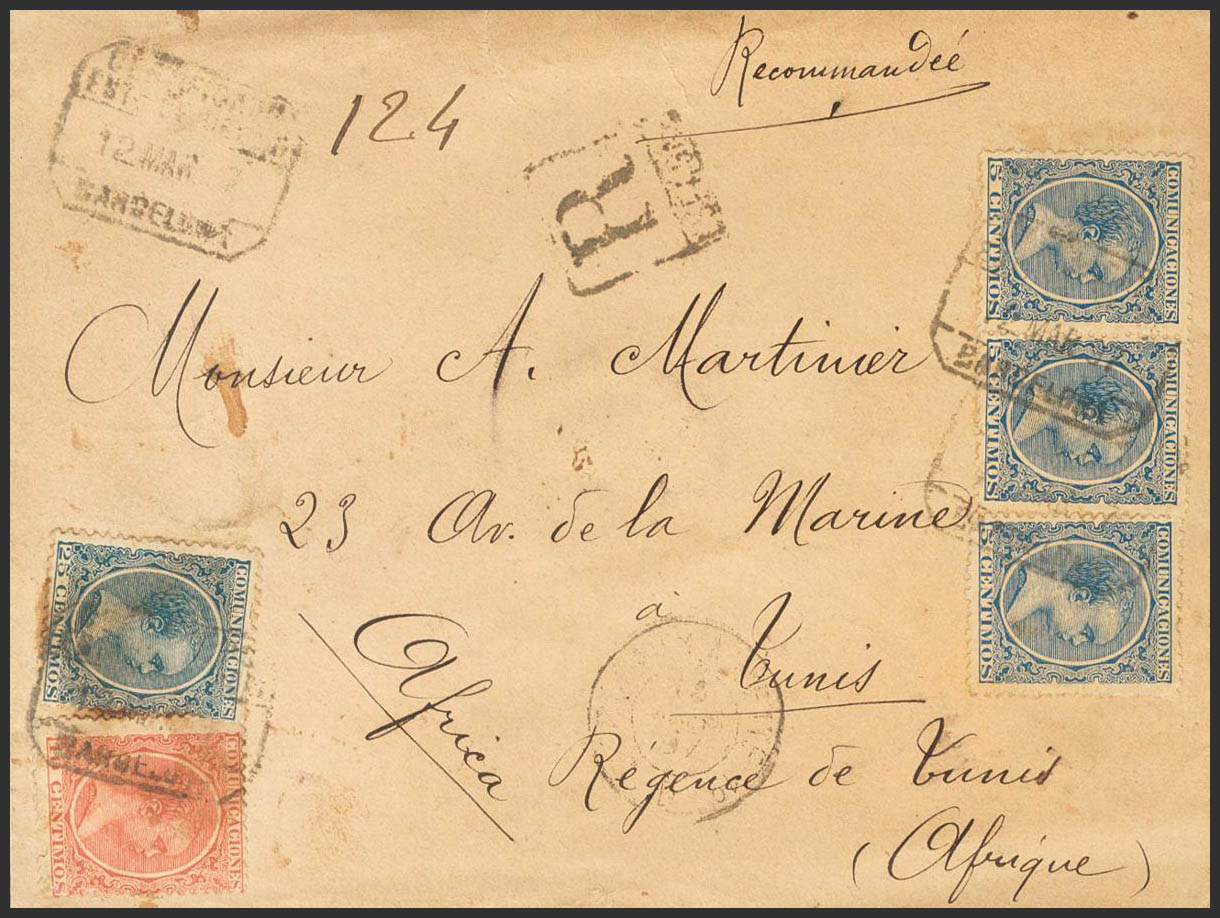 Recommandée
124
12 MAR
BARCELONA
R
Monsieur A. Martinier
23 Av. de la Marine
à
Tunis
Africa
Regence de Tunis
(Afrique)
COMUNICACIONES
5 CENTIMOS
COMUNICACIONES
5 CENTIMOS
COMUNICACIONES
5 CENTIMOS
MAR
BARCELONA
COMUNICACIONES
25 CENTIMOS
BARCELONA
COMUNICACIONES
CENTIMOS